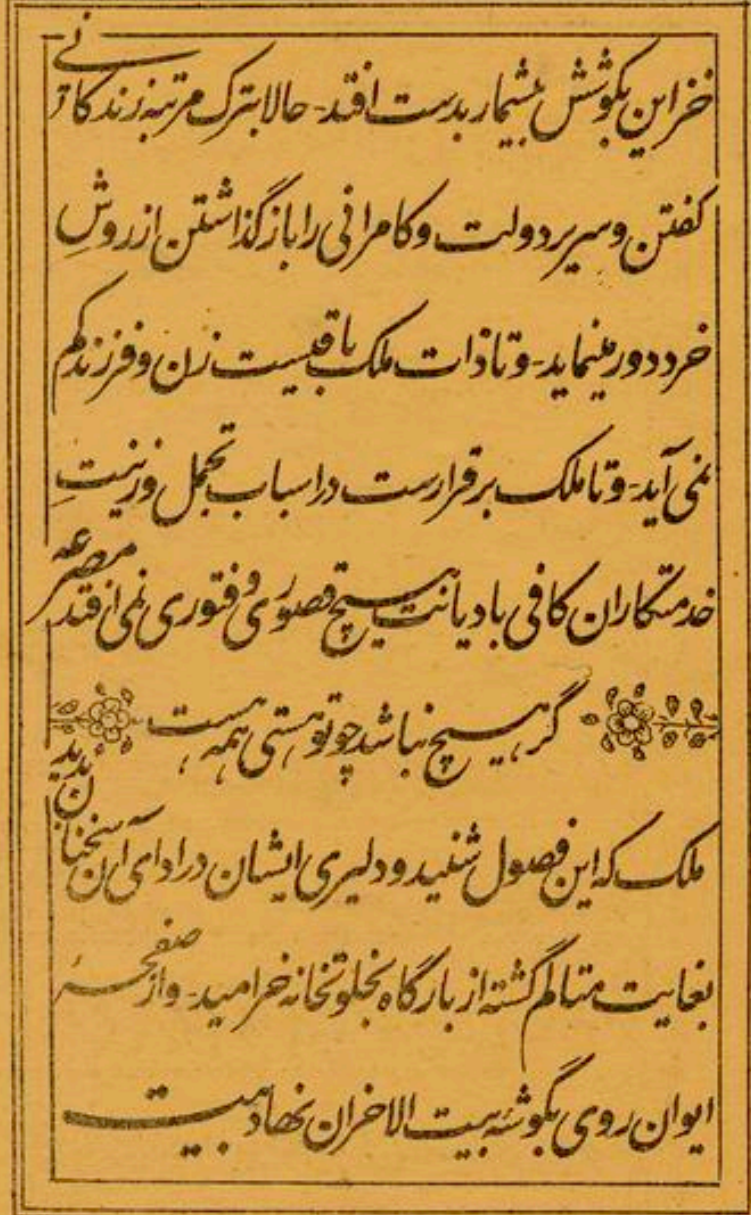 خزاین بکوشش بیشمار بدست افتد- حالا بترک مرتبه زندگانی
گفتن و سریر دولت و کامرانی را باز گذاشتن از روشِ
خرد دور مینماید- و تا ذات ملک باقیست زن و فرزند کم
نمی آید- و تا ملک برقرارست در اسباب تجمل و زینتِ
خدمتگاران کافی با دیانت هیچ قصوری و فتوری نمی افتد مصرعه
گر هیچ نباشد چو تو هستی همه هست
ملک که این فصول شنید و دلیری ایشان در ادای آن سخنان بدید
بغایت متالم گشته از بارگاه بخلوتخانه خرامید- و از صفحهٔ
ایوان روی بگوشهٔ بیت الاحزان نهاد بیت